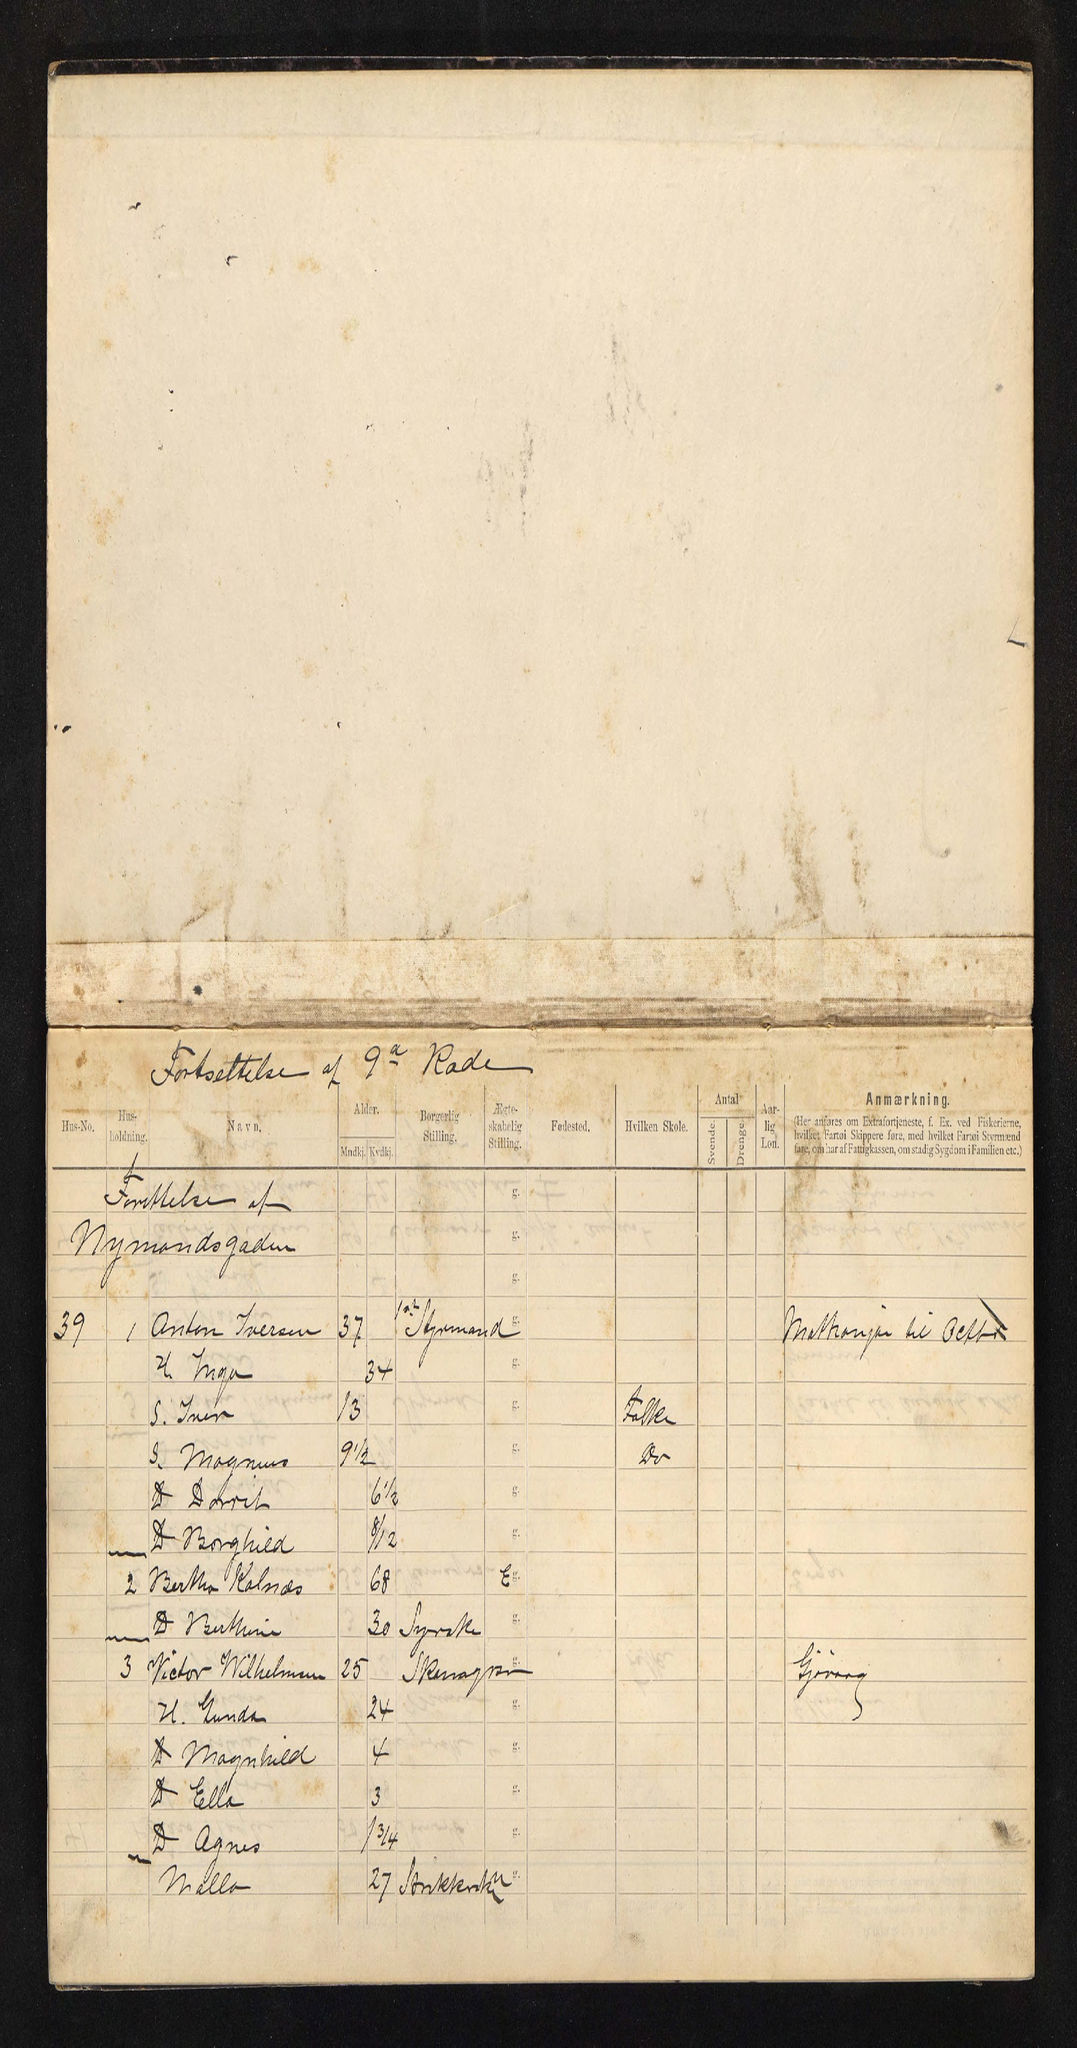 Fortsettelse af 9a Rode
Hus-No. Hus-holdning. Navn. Alder. Mndkj. Kvdkj. Borgerlig Stilling. Ægte-skabelig Stilling. Fødested. Hvilken Skole. Antal Svende. Drenge. Aar-lig Løn. Anmærkning.
(Her anføres om Extrafortjeneste, f. Ex. ved Fiskerierne, hvilket Fartøi Skippere føre, med hvilket Fartøi Styrmænd fare, om har af Fattigkassen, om stadig Sygdom i Familien etc.)
Forsettelse af g.
Nymandsgaden g.
g.
39 1 Anton Iversen 37 1st Styrmand g. til
H. Inga 34 g.
S. Iver 13 g. Folke
S. Magnus 9 1/2 g. Do
D Dorrit 6 1/2 g.
D Borghild 8/12 g.
2 Bertha Kalnæs 68 E g.
D Berthine 30 Syerske g.
3 Victor Wilhelmsen 25 g.
H. Gunda 24 g.
D Magnhild 4 g.
D Ella 3 g.
D Agnes 1 3/4 g.
Malla 27 g.